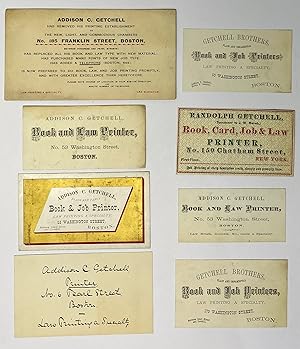 ADDISON C. GETCHELL
HAS REMOVED HIS PRINTING ESTABLISHMENT
TO
THE NEW, LIGHT, AND COMMODIOUS CHAMBERS
No. 105 FRANKLIN STREET, BOSTON,
HAS REPLACED ALL HIS BOOK AND LAW TYPE WITH NEW MATERIAL,
HAS PURCHASED MANY FONTS OF NEW JOB TYPE
IS NOW PREPARED TO DO BOOK, LAW, AND JOB PRINTING PROMPTLY,
AND WITH GREATER EXCELLENCE THAN HERETOFORE.
LAW PRINTING A SPECIALTY.
ADDISON C. GETCHELL,
Book and Law Printer,
No. 53 Washington Street,
BOSTON.
ADDISON C. GETCHELL,
Book & Job Printer,
LAW PRINTING A SPECIALTY,
WASHINGTON STREET,
BOSTON
Addison C. Getchell
Printer
No. 6 Pearl Street
Boston
Law Printing a Specialty
GETCHELL BROTHERS,
Book and Job Printers
LAW PRINTING A SPECIALTY,
WASHINGTON STREET,
BOSTON.
RANDOLPH GETCHELL,
Book, Card, Job & Law
PRINTER,
No. 150 Chatham Street,
NEW YORK.
ADDISON C. GETCHELL,
BOOK AND LAW PRINTER,
No. 53 Washington Street,
BOSTON
GETCHELL BROTHERS,
Book and Job Printers,
LAW PRINTING A SPECIALTY,
WASHINGTON STREET,
BOSTON.